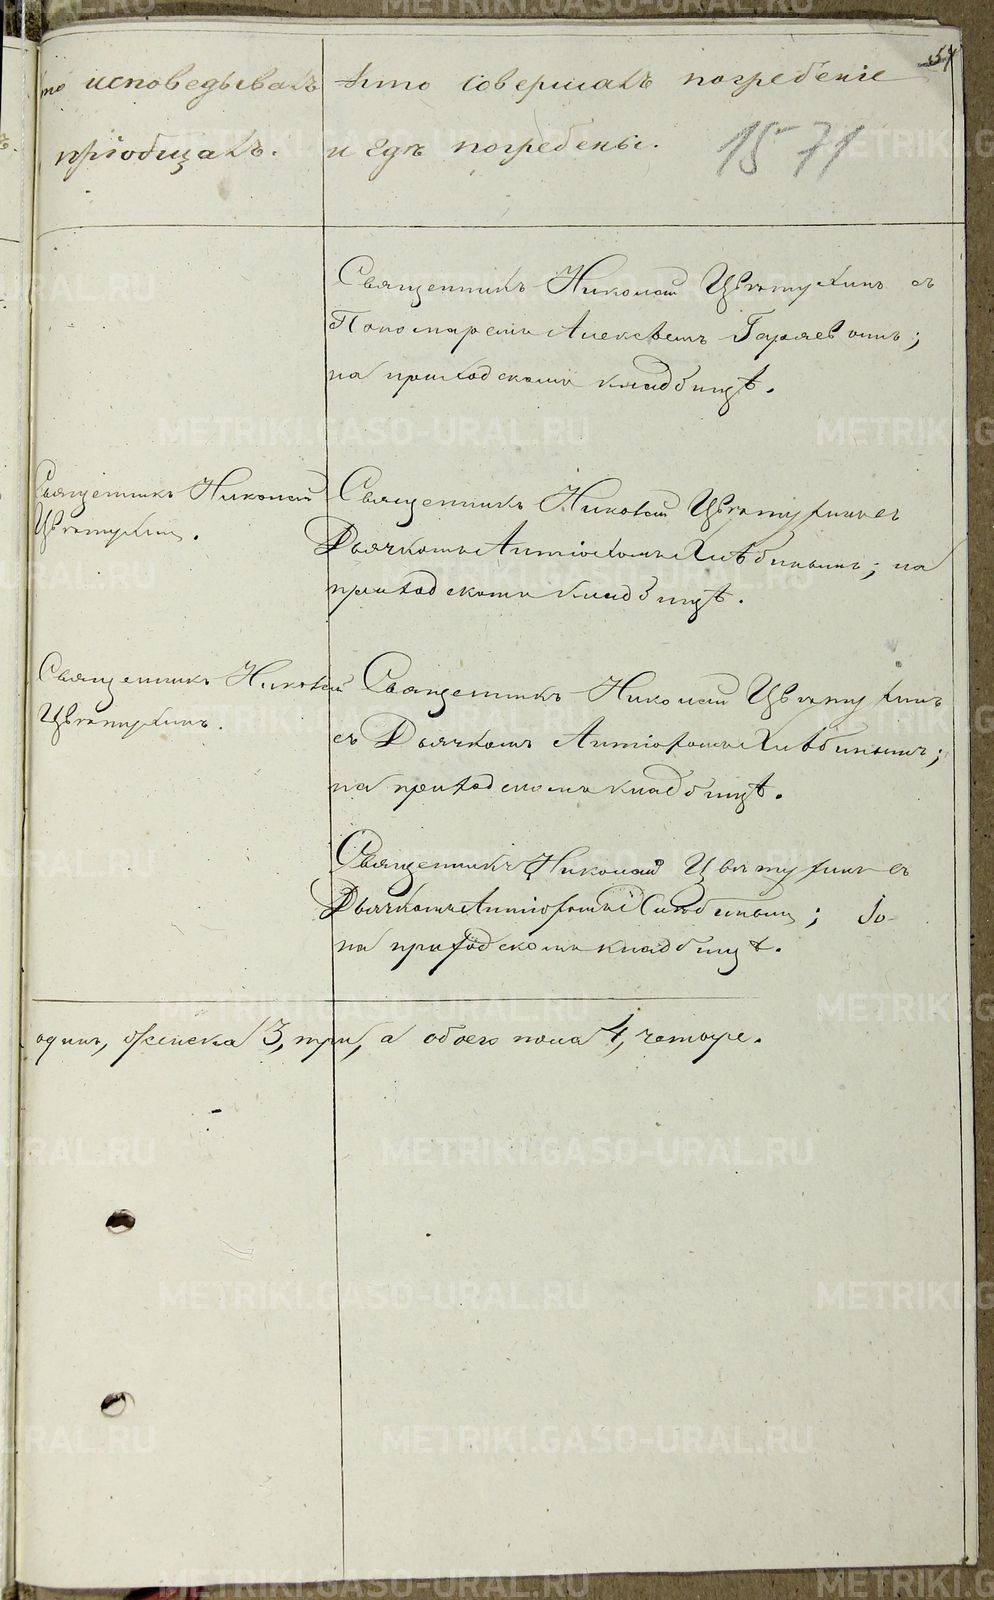 57
то исповѣдывалъ
пріобщалъ.
кто совершалъ погребеніе
и гдѣ погребены.
1571
Священникъ Николай Цвѣтухинъ съ
Пономаремъ Алексѣемъ Гаряевымъ;
на приходскомъ кладбищѣ.
Священникъ Николай
Цвѣтухинъ.
Священникъ Николай Цвѣтухинъ съ
Дьячкомъ Антіохомъ Хлѣбинымъ; на
приходскомъ кладбищѣ.
Священникъ Николай
Цвѣтухинъ.
Священникъ Николай Цвѣтухинъ
съ Дьячкомъ Антіохомъ Хлѣбинымъ;
на приходскомъ кладбищѣ.
Священникъ Николай Цвѣтухинъ съ
Дьячкомъ Антіохомъ Хлѣбинымъ;
на приходскомъ кладбищѣ.
одинъ, женска 3, три, а обоего пола 4, четыре.
METRIKI.GASO-URAL.RU